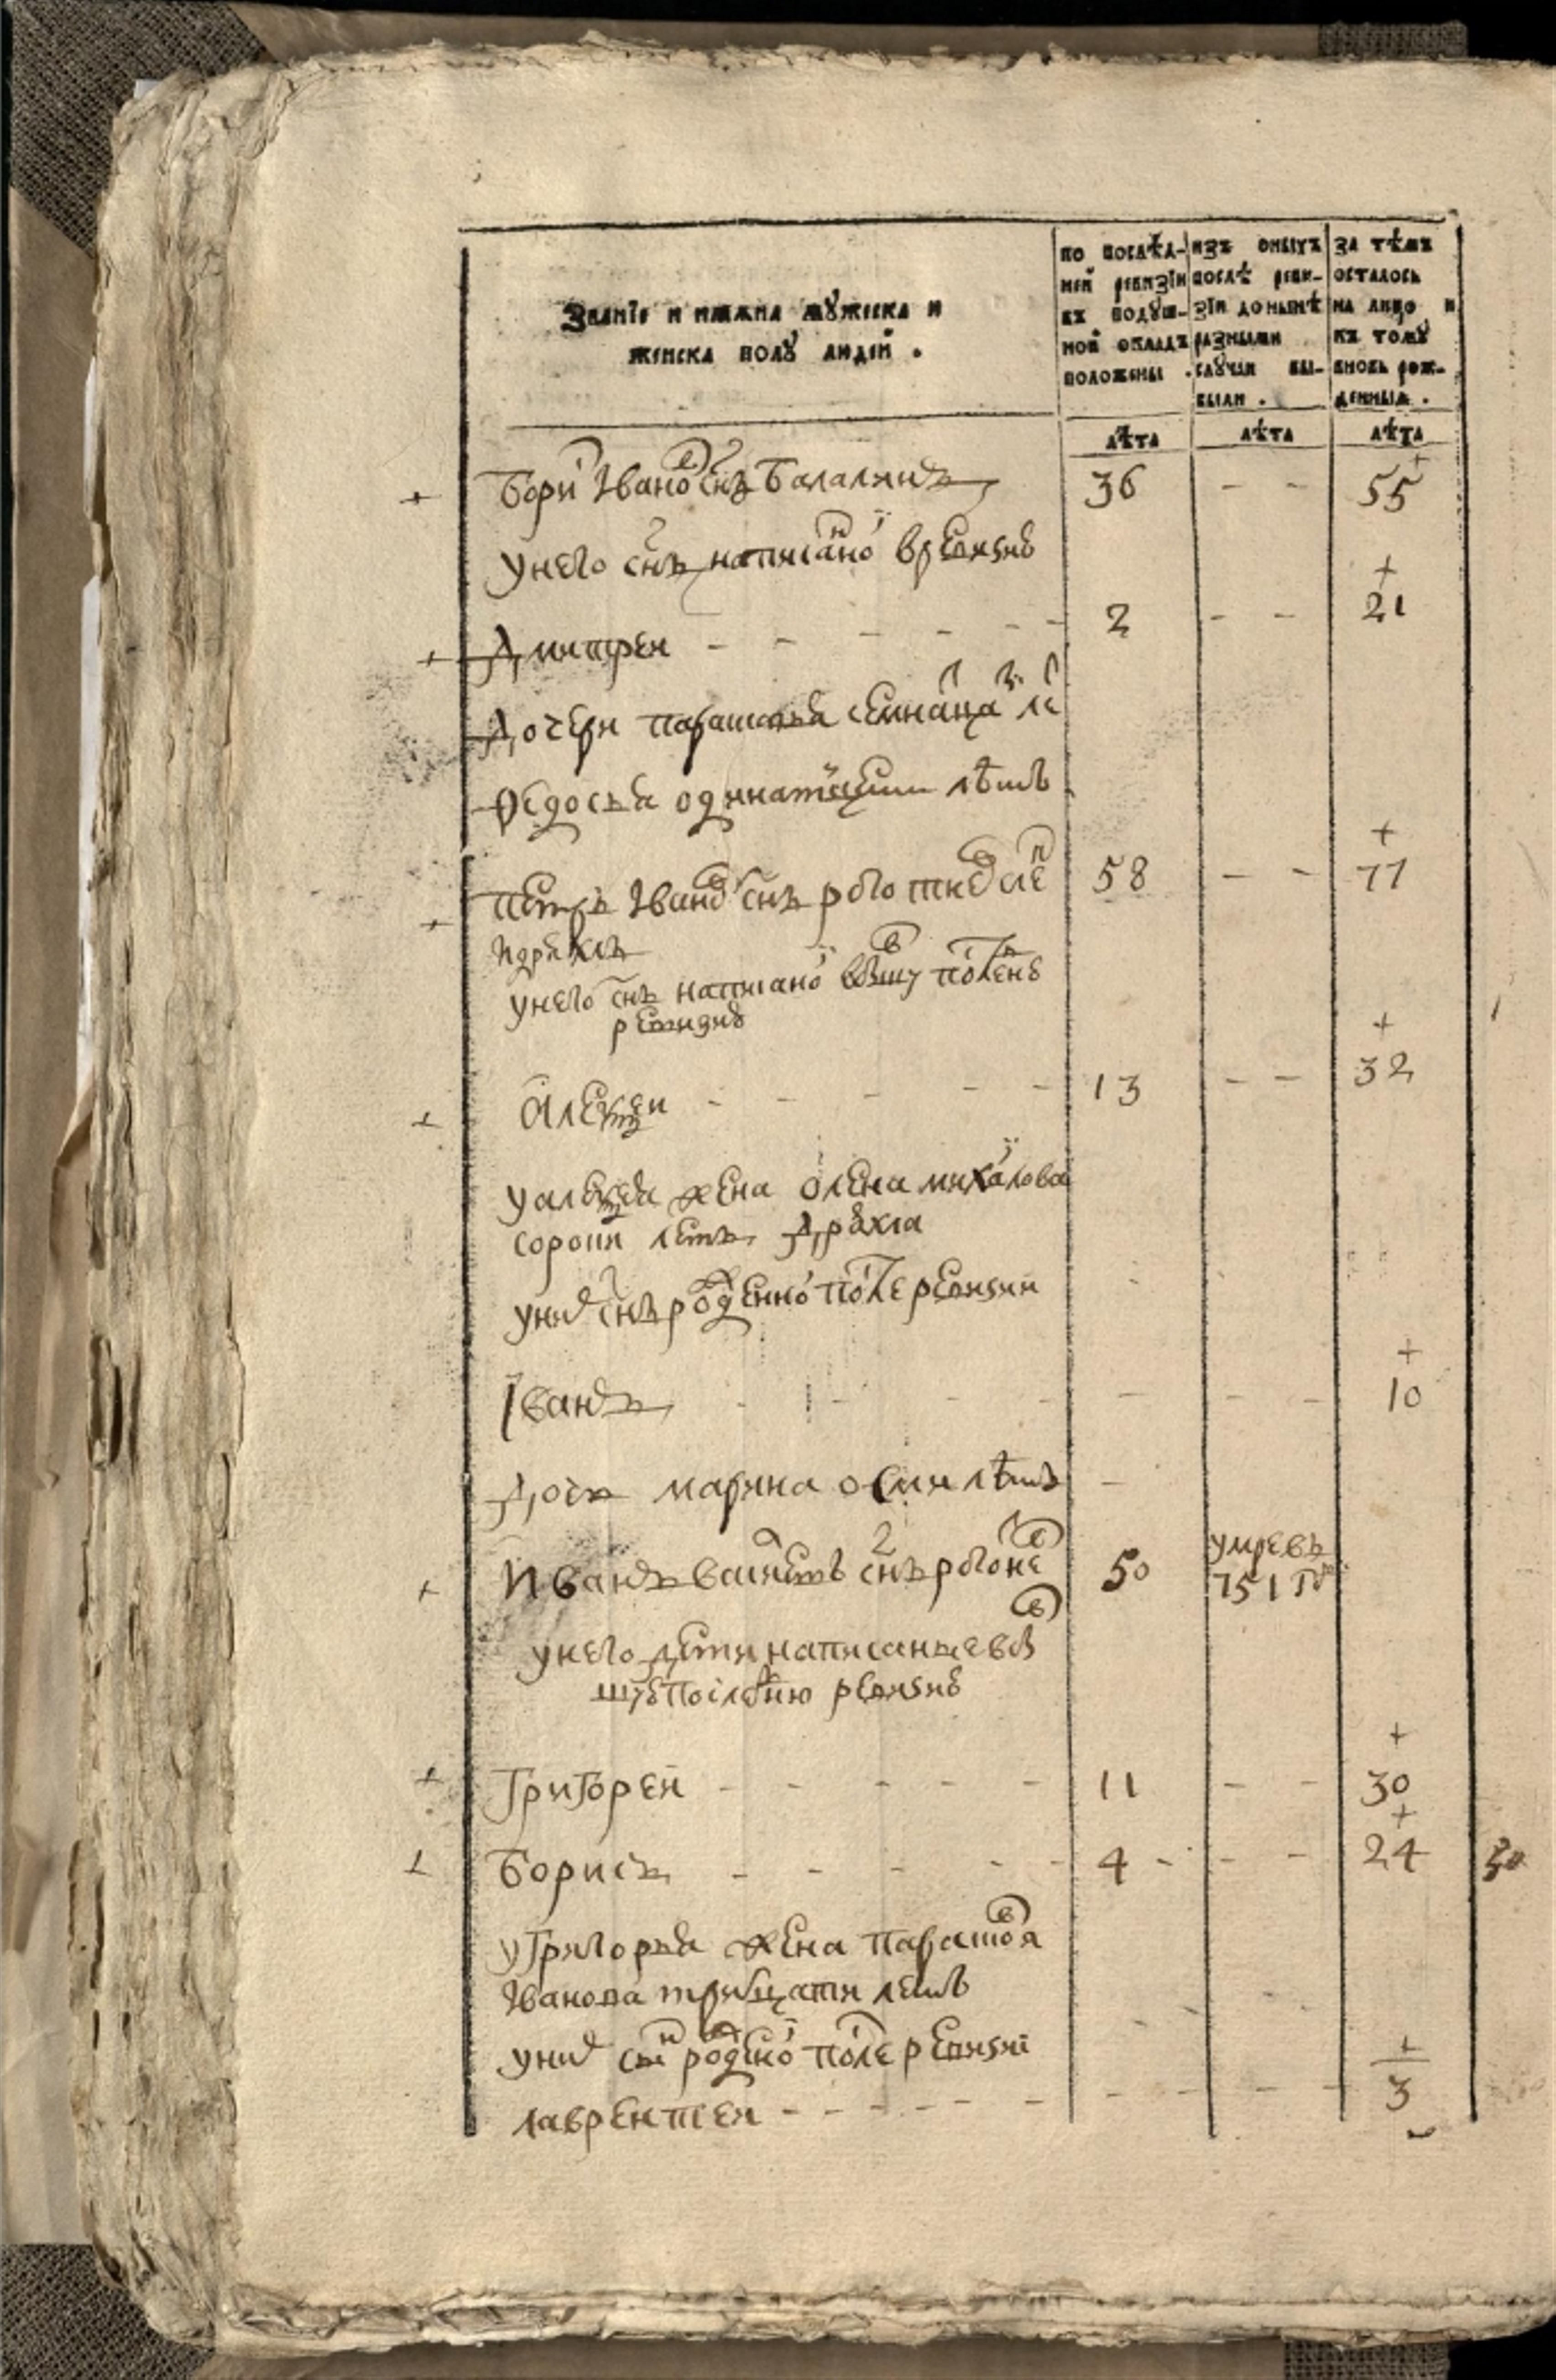 Званїе и имѧна мꙋжеска и
женска полꙋ людей .
по послѣд-
ней ревизїи
въ подꙋш-
ной окладъ
положены .
изъ оныхъ
послѣ реви-
зїи до нынѣ
разными
слꙋчаи вы-
были .
за тѣмъ
осталось
на лицо и
къ томꙋ
вновь рож-
денныѧ .
лѣта лѣта лѣта
Борис Iванов снъ Балалинъ 36 - - 55
унего снъ написаной вревизию
Дмитреи - - - - - - 2 - - 21
Дочери парасковья семнацат лет
Федосья одинатцети лѣтъ
петръ Iванов снъ 58 - - 77
унего снъ написаной вышу послен
ревизию
Алексеи - - - - 13 - - 32
уалексея жена олена михайлова
сорони летъ дряхла
уних снъ рожденной после ревизии
Iванъ - - - - - - - 10
Дочь марина осми лѣтъ -
Иванъ васильевъ снъ 50 умре въ
751 го
унего дети написанные вы
шу последнюю ревизию
Григорей - - - - - 11 - - 30
Борисъ - - - - - 4 - - - 24
угригорья жена парасковя
Iванова трицати летъ
уних сын рожденой после ревизиi
лаврентеи - - - - - - - - - - 3